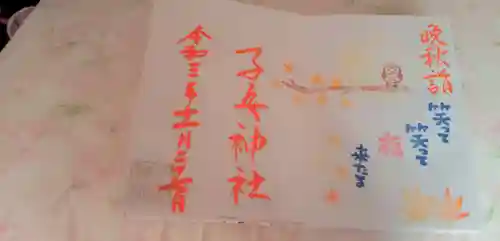 晩秋詣
笑って
笑って
福
来たる
子安神社
令和三年十一月二十七日